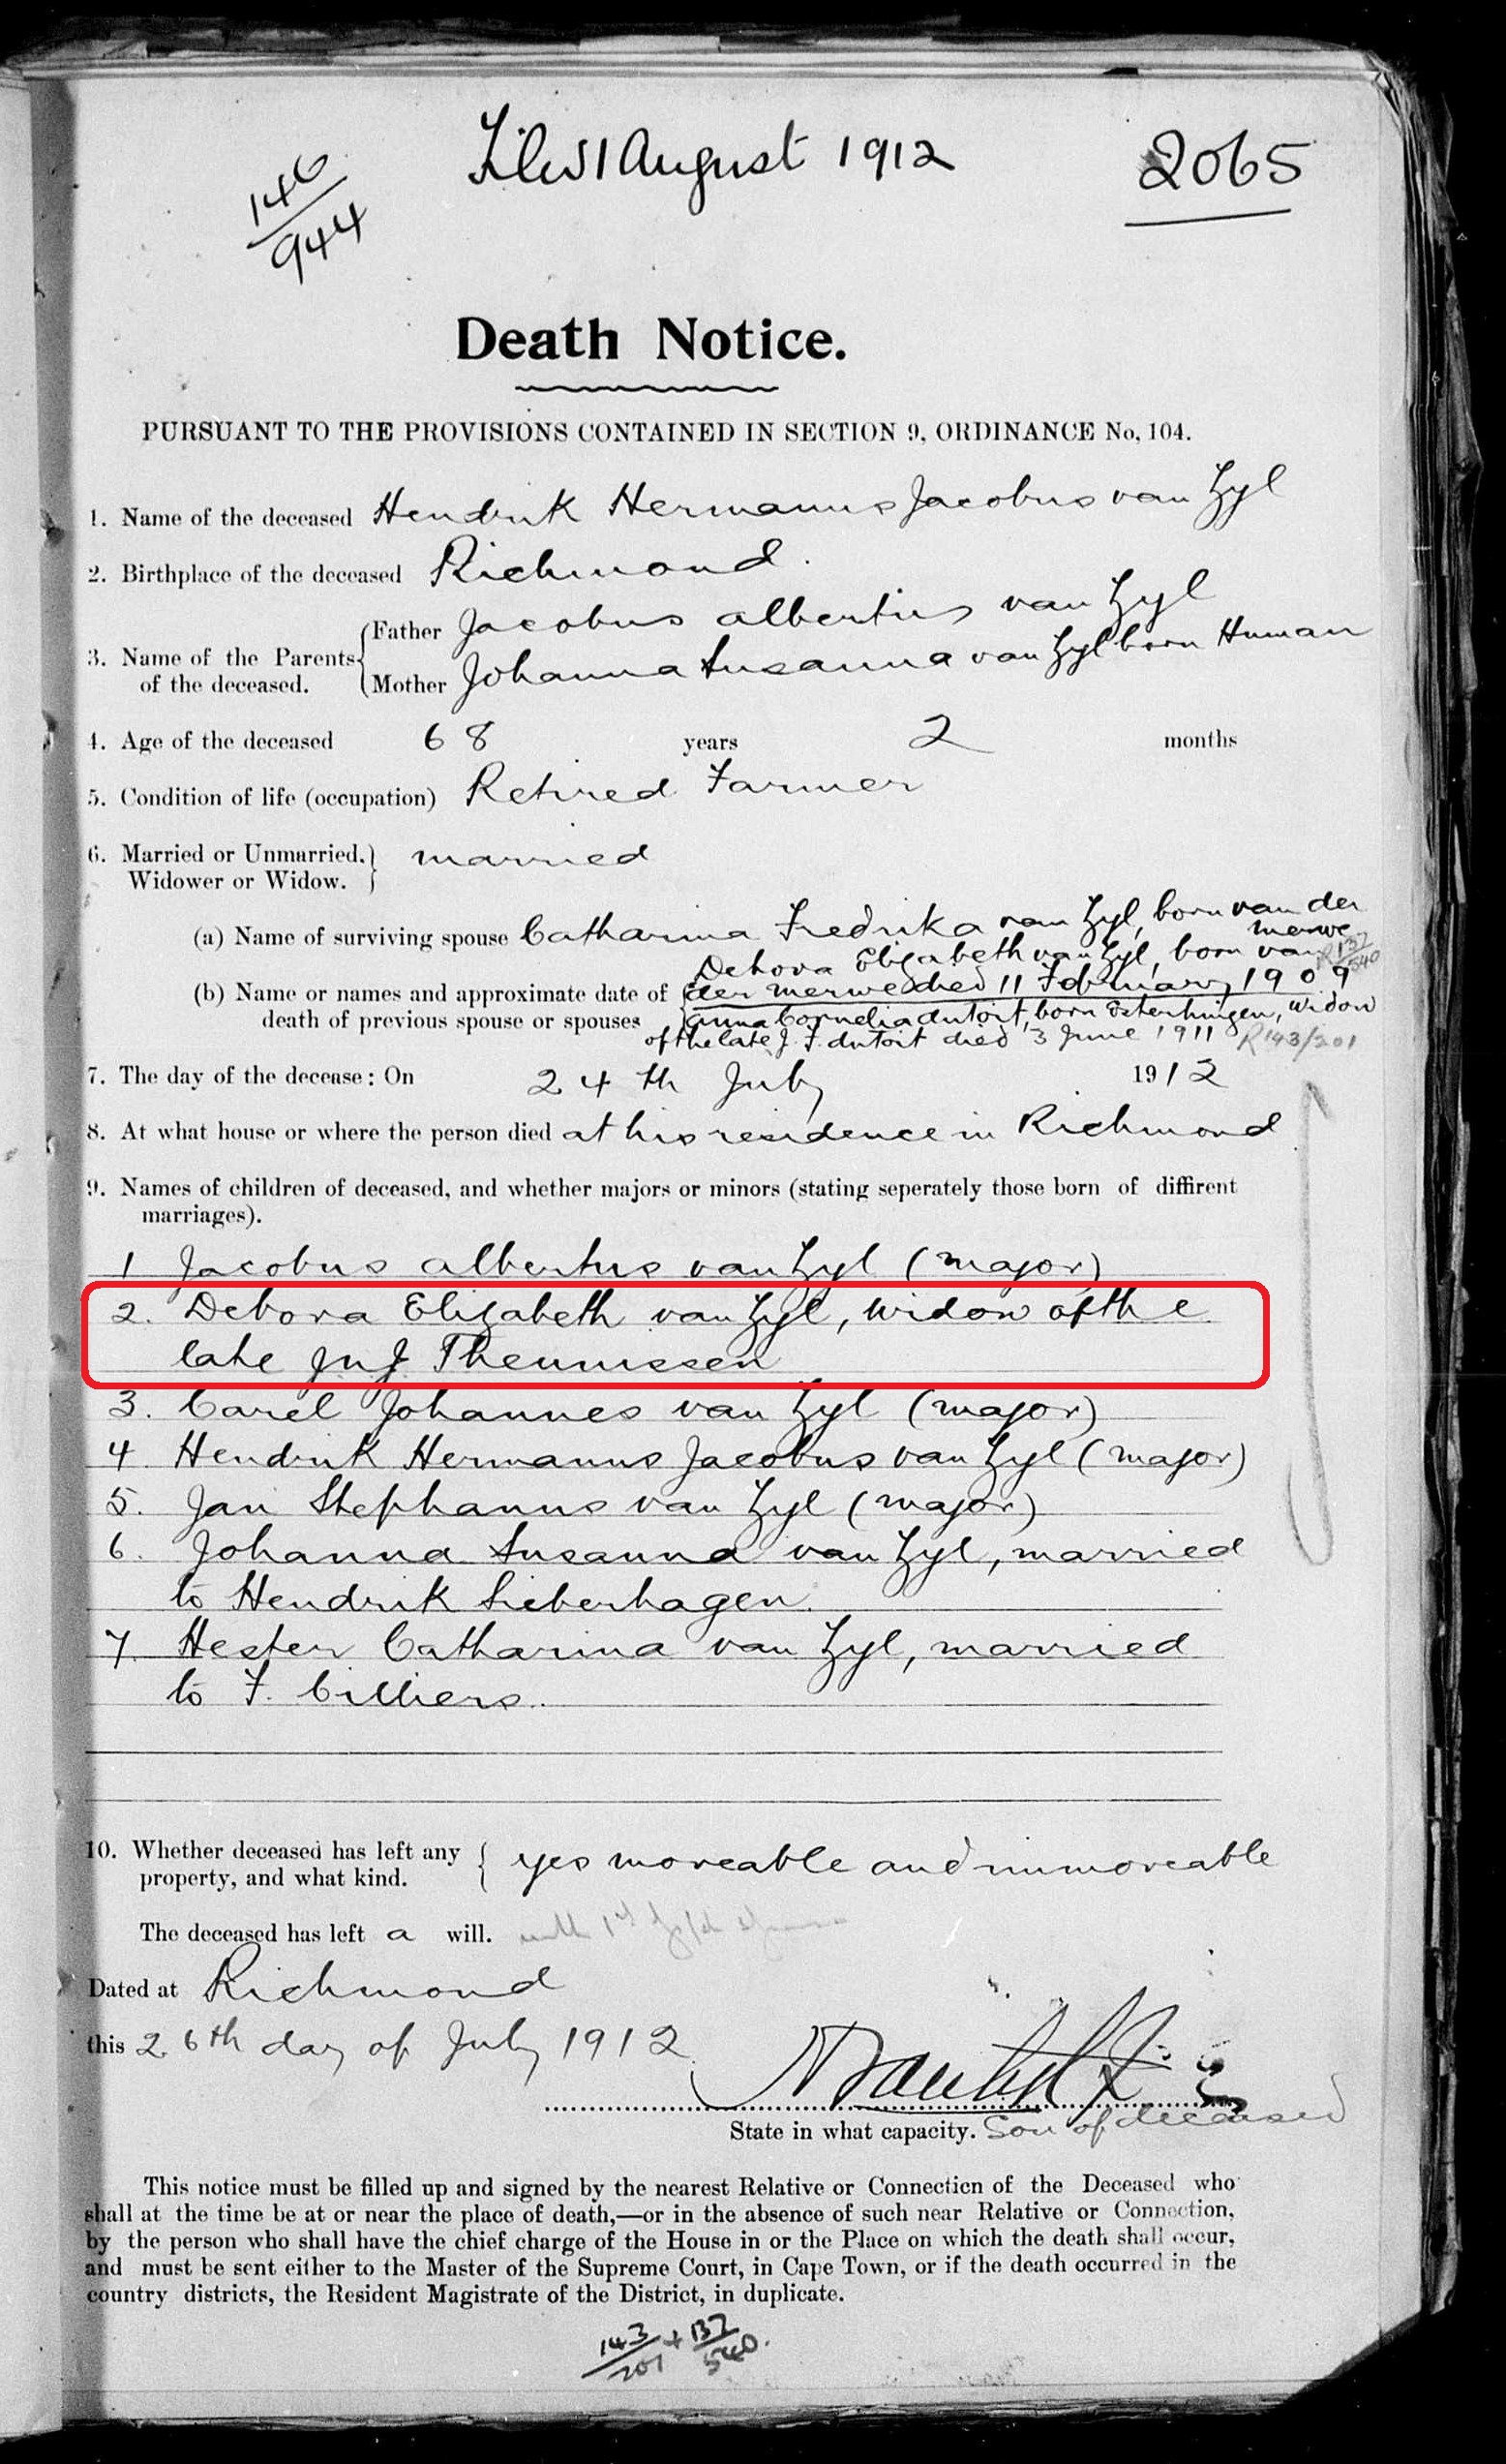 146
944
Filed 1 August 1912
2065
Death Notice.
PURSUANT TO THE PROVISIONS CONTAINED IN SECTION 9, ORDINANCE No. 104.
1. Name of the deceased Hendrik Hermanus Jacobus van Zyl
2. Birthplace of the deceased Richmond.
3. Name of the Parents of the deceased.
Father Jacobus albertus van Zyl
Mother Johanna Susanna van Zyl born Human
4. Age of the deceased 68 years 2 months
5. Condition of life (occupation) Retired Farmer
6. Married or Unmarried. Widower or Widow. married
(a) Name of surviving spouse Catharina Fredrika van Zyl, born van der merwe
(b) Name or names and approximate date of death of previous spouse or spouses
Debora Elizabeth van Zyl, born van
der merwe died 11 February 1909
R 137/540
anna Cornelia du toit, born, widow
of the late J. F. du toit died 3 June 1911 R143/201
7. The day of the decease: On 24th July 1912
8. At what house or where the person died at his residence in Richmond
9. Names of children of deceased, and whether majors or minors (stating seperately those born of diffirent
marriages).
1 Jacobus albertus van Zyl (major)
2. Debora Elizabeth van Zyl, widow of the
late Theunissen
3. Carel Johannes van Zyl (major)
4. Hendrik Hermanus Jacobus van Zyl (major)
5. Jan Stephanus van Zyl (major)
6. Johanna Susanna van Zyl, married
to Hendrik Lieberhagen.
7. Hester Catharina van Zyl, married
to F. Cilliers.
10. Whether deceased has left any property, and what kind. yes moveable and immoveable
The deceased has left a will.
Dated at Richmond
this 26th day of July 1912
State in what capacity. Son of deceased
This notice must be filled up and signed by the nearest Relative or Connection of the Deceased who
shall at the time be at or near the place of death,—or in the absence of such near Relative or Connection,
by the person who shall have the chief charge of the House in or the Place on which the death shall occur,
and must be sent either to the Master of the Supreme Court, in Cape Town, or if the death occurred in the
country districts, the Resident Magistrate of the District, in duplicate.
143/201 + 137/540.